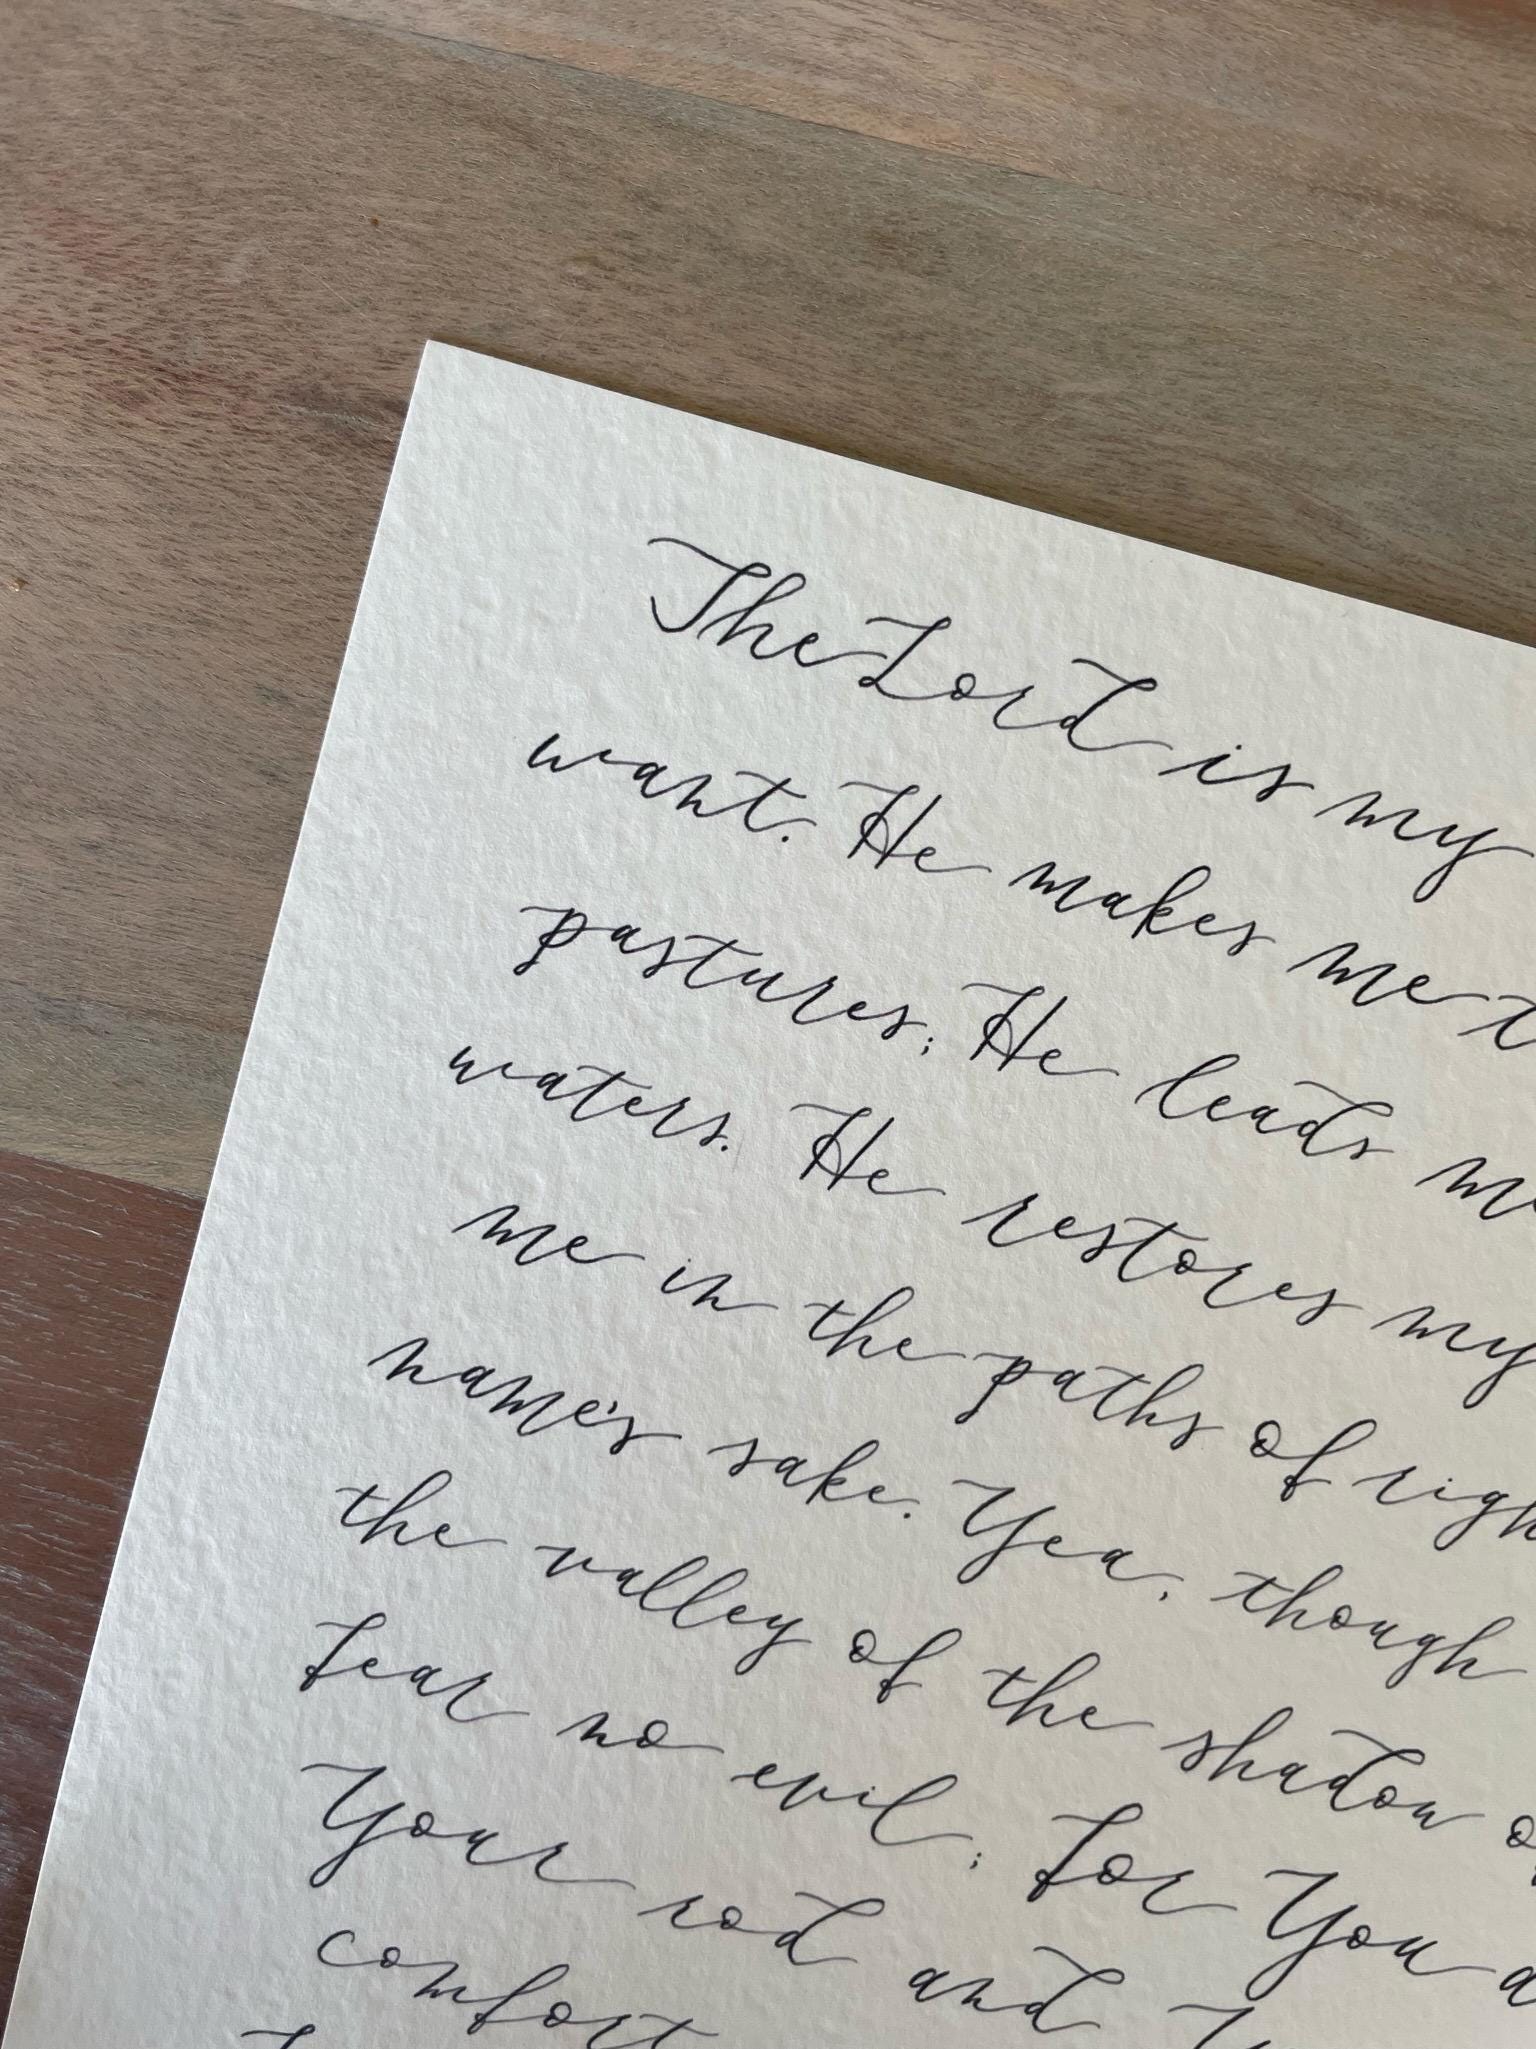 The Lord is my
want. He makes me
pastures; He leads
waters. He restores my
me in the paths of
name's sake. Yea, though
the valley of the shadow
fear no evil; For You
Your rod and
comfort